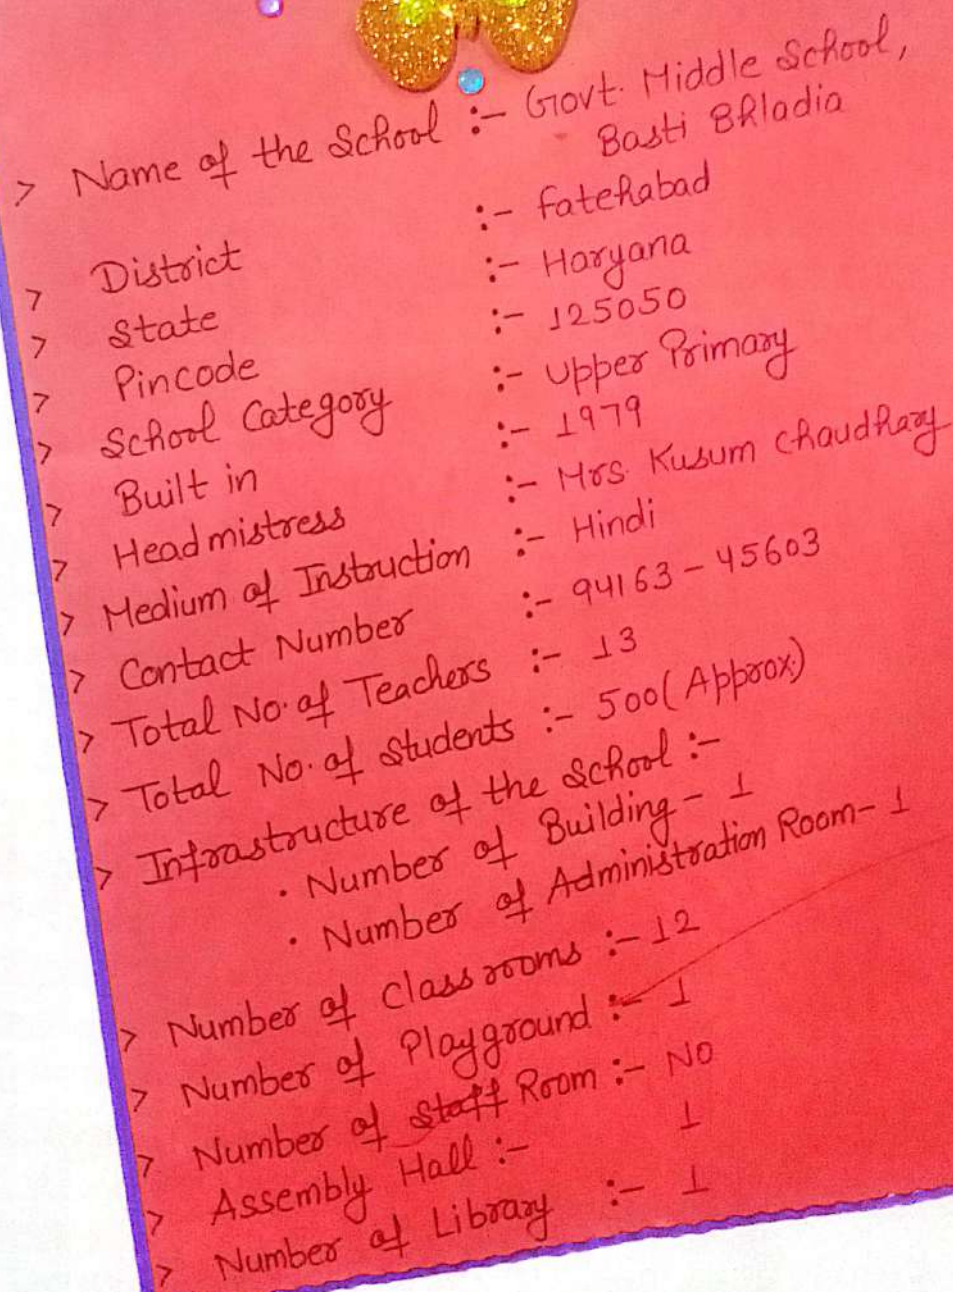 > Name of the School :- Govt. Middle School,
Basti Bhladia
> District :- fatehabad
> State :- Haryana
> Pincode :- 125050
> School Category :- Upper Primary
> Built in :- 1979
> Headmistress :- Mrs. Kusum Chaudhary
> Medium of Instruction :- Hindi
> Contact Number :- 94163-45603
> Total No. of Teachers :- 13
> Total No. of Students :- 500(Approx.)
> Infrastructure of the School :-
• Number of Building - 1
• Number of Administration Room- 1
> Number of Classrooms :- 12
> Number of Playground :- 1
> Number of Staff Room :- NO
> Assembly Hall :- 1
> Number of Library :- 1